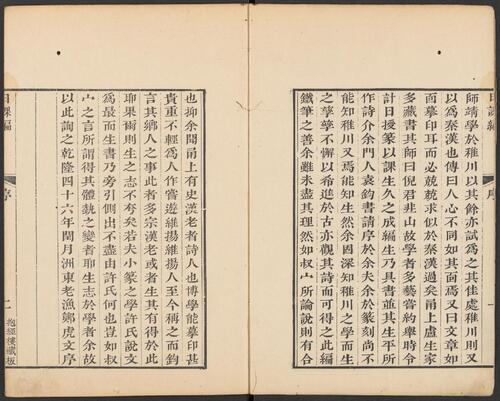 日課編
序
一
師靖學於稚川以其餘亦試爲之其佳處稚川則又
以爲秦漢也傳曰人心不同如其面焉又曰文章如
面摹印耳而必兢兢求似於秦漢過矣甬上盧生家
多藏書其師曰倪君非山故學者多藝嘗約舉時令
計日授篆以課生久之成編生乃具書並其生平所
作詩介余門人袁鈞書請序於余夫余於篆刻尚不
能知稚川又焉能知生然余固深知稚川之學而生
之孳孳不懈以希進於古亦觀其詩而可得之此編
鐵筆之善余雖未盡其理然如叔𡵆所論說則有合
也抑余聞甬上有史漢老者詩人也博學能摹印甚
貴重不輕爲人作嘗遊維揚維揚人至今稱之而鈞
言其鄉人之事此者多宗漢老或者生其有得於此
耶果爾則生之志不夸矣若夫小篆之學許氏說文
爲最而生書乃旁引側出不盡由許氏何也豈如叔
𡵆之言所謂得其體貌之變者耶生志於學者余故
以此詢之乾隆四十六年閏月洲東老漁鄭虎文序
日課編
序
二
抱經樓藏板